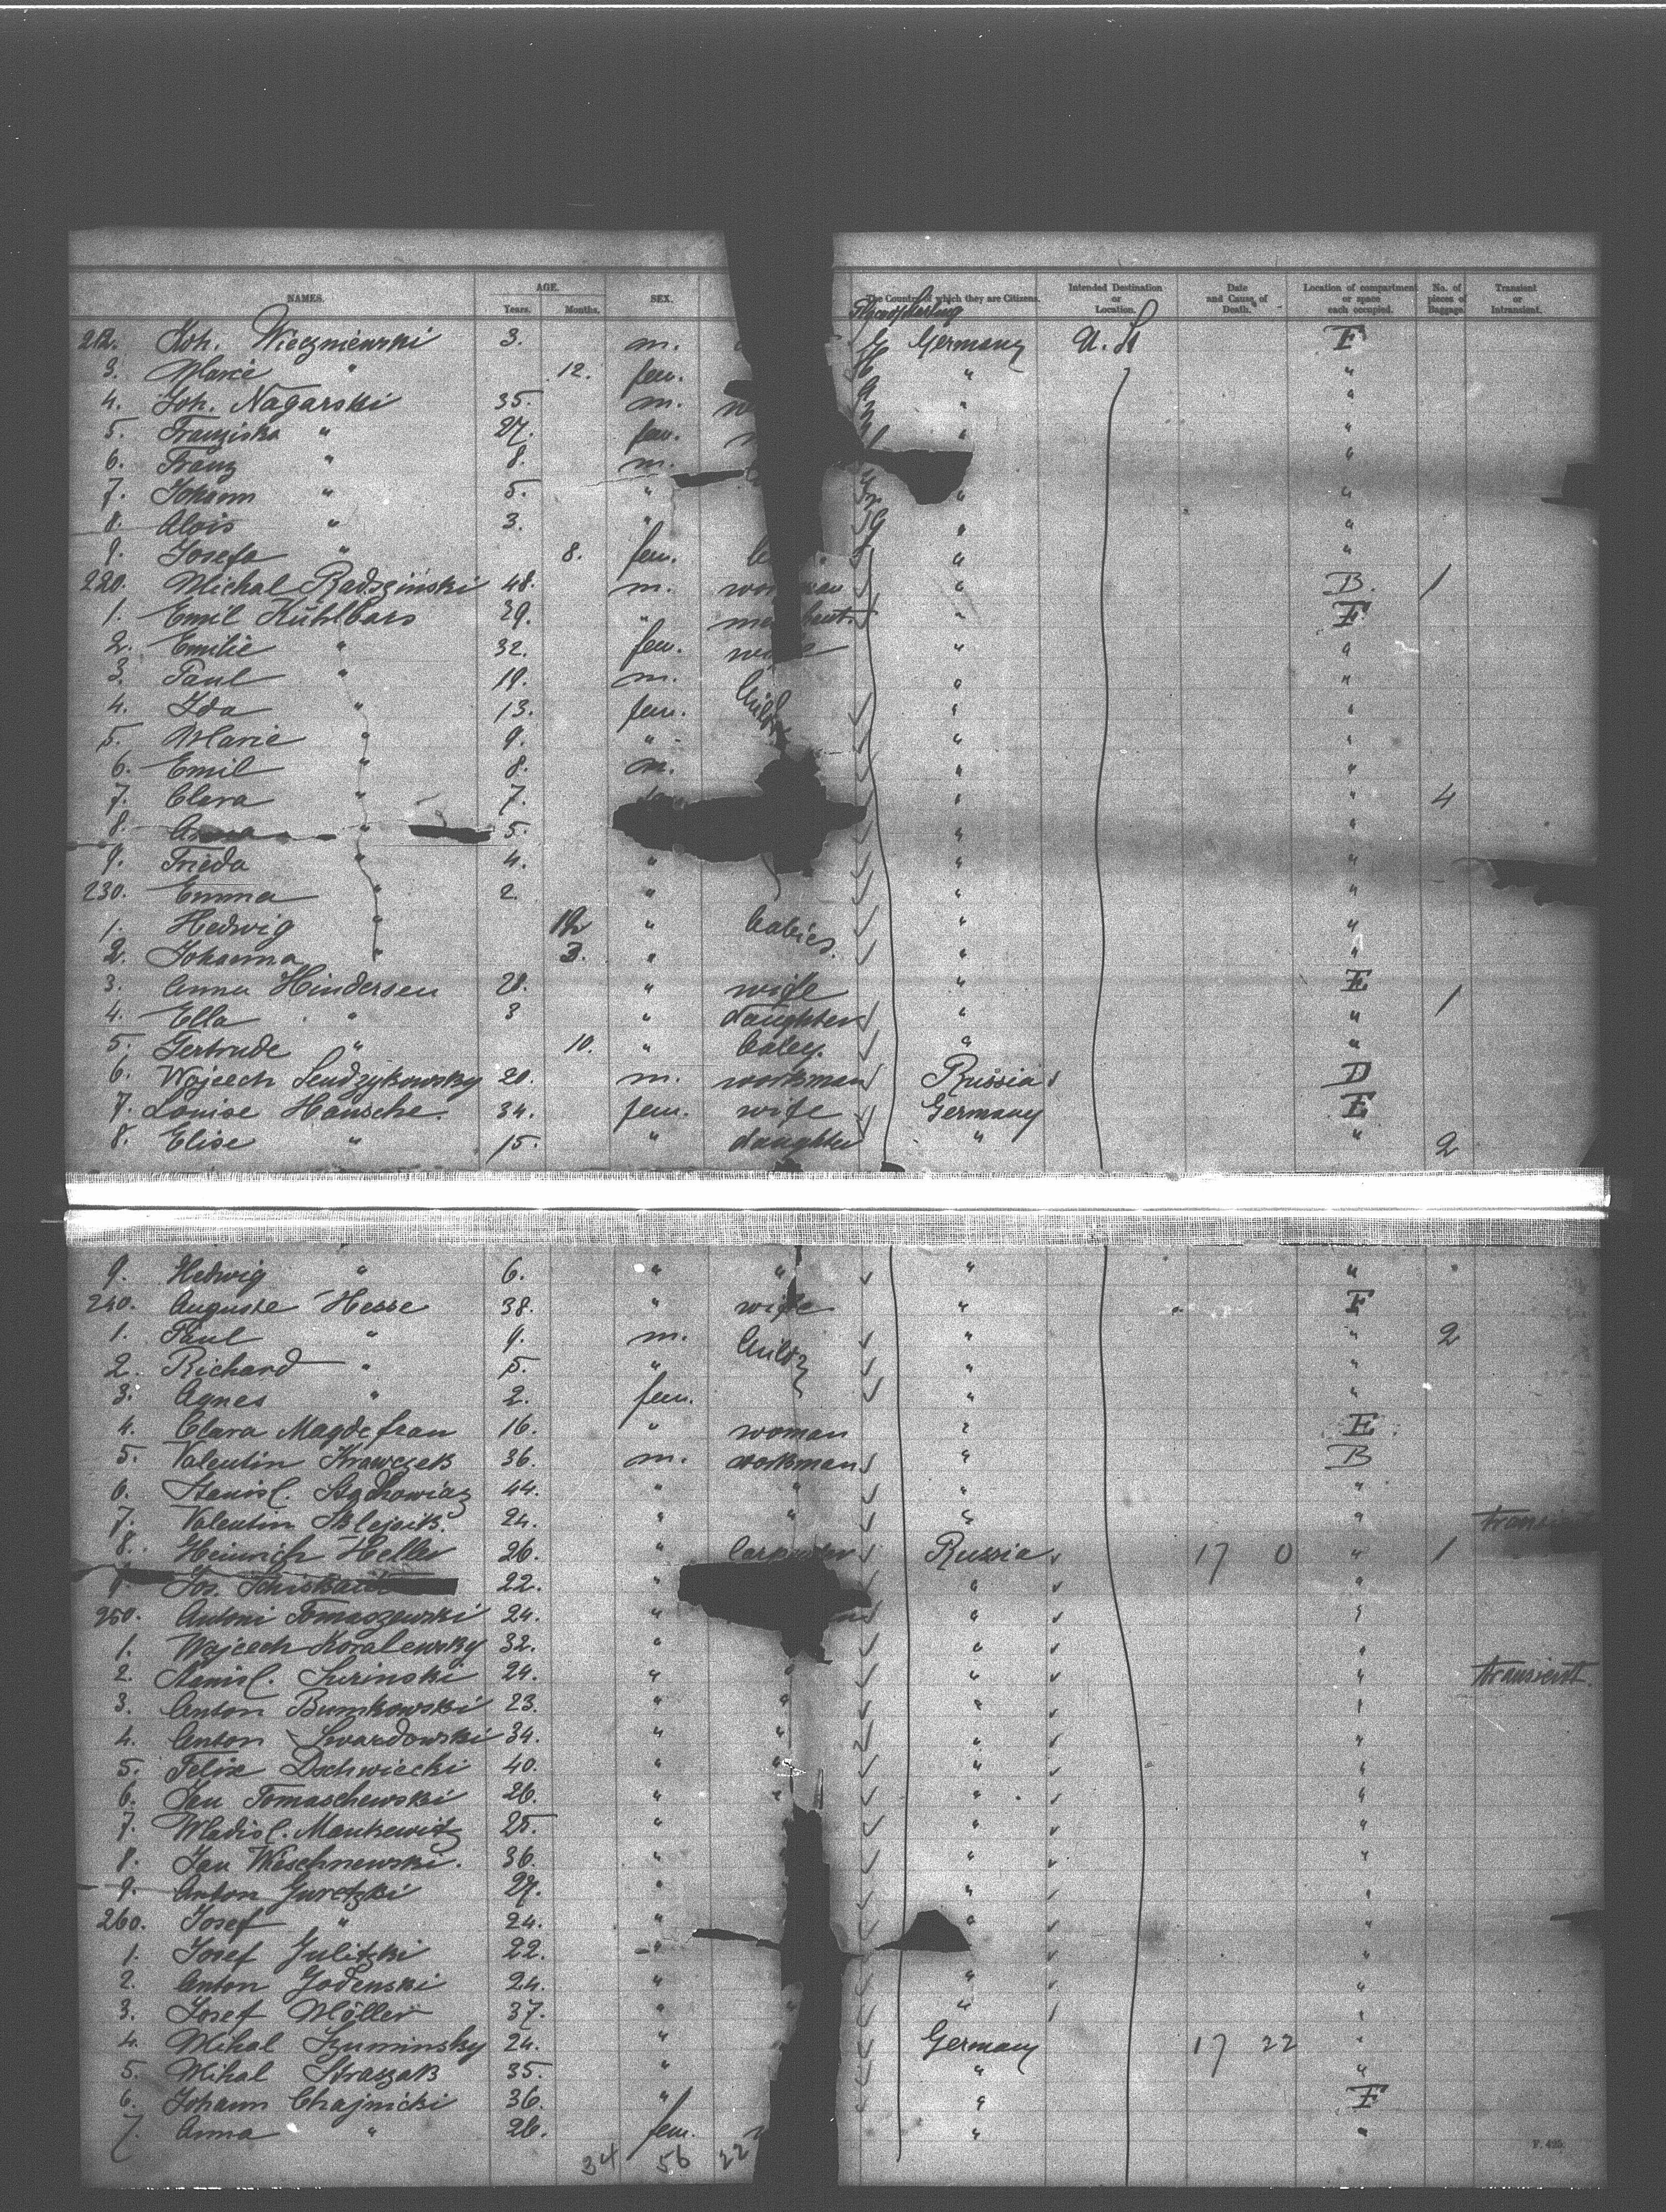 NAMES. AGE. Years. Months. SEX. The Country of which they are Citizens. Intended Destination or Location. Date and Cause of Death. Location of compartment or space each occupied. No. of pieces of Baggage. Transient or Intransient.
212. Joh. Wieczniewski 3. m. Germany U. St F
3. Marie " 12. fem. " "
4. Joh. Nagarski 35. m. " "
5. Franziska " 27. fem. " "
6. Franz " 8. m. "
7. Johann " 5. " " "
8. Alois " 3. " " "
9. Josefa " 8. fem. " "
220. Michal Radszinski 48. m. " B. 1
1. Emil Kühlbars 39. " " F
2. Emilie " 32. fem. " "
3. Paul " 19. m. " "
4. Ida " 13. fem. " "
5. Marie " 9. " " "
6. Emil " 8. m. " "
7. Clara " 7. " " 4
8. Anna " 5. " "
9. Frieda " 4. " " "
230. Emma " 2. " " "
1. Hedwig " " babies. " "
2. Johanna " 3. " " "
3. Anna Hindersen 28. " wife " E
4. Ella " 3 " daughter " " 1
5. Gertrude " 10. " baby. " "
6. Wojcech Sendzykowsky 20. m. workman Russia D
7. Louise Hansche. 34. fem. wife Germany E
8. Elise " 15. " daughter " " 2
9. Hedwig " 6. " " " "
240. Auguste Hesse 38. " wife " F
1. Paul " 9. m. Child " " 2
2. Richard " 5. " " "
3. Agnes " 2. fem. " "
4. Clara Magdefrau 16. " woman " E
5. Valentin Krawczek 36. m. workman " B
6. Stanisl. 44. " " " "
7. Valentin 24. " " " " transient
8. Heinrich Heller 26. " Carpenter Russia 17 0 " 1
9. Jos. 22. " " "
250. Antoni Tomaszewski 24. " " "
1. Wojcech Koralewsky 32. " " "
2. Stanisl. Surinski 24. " " " " transient.
3. Anton Bumkowski 23. " " " "
4. Anton Swardowski 34. " " " "
5. Felix Dschwiecki 40. " " " "
6. Jan Tomaschewski 26. " " " "
7. Wladisl. Mankewitz 25. " " "
8. Jan Weschnewski. 36. " " "
9. Anton Guretzki 27. " " "
260. Josef " 24. " " "
1. Josef Gulitzki 22. " "
2. Anton Godenski 24. " " "
3. Josef Möller 37. " " " "
4. Mihal Szuminsky 24. " Germany 17 22 "
5. Mihal Straszak 35. " " "
6. Johann Chajnicki 36. " " F
7. Anna " 26. fem. " "
34 56 22
F. 425.